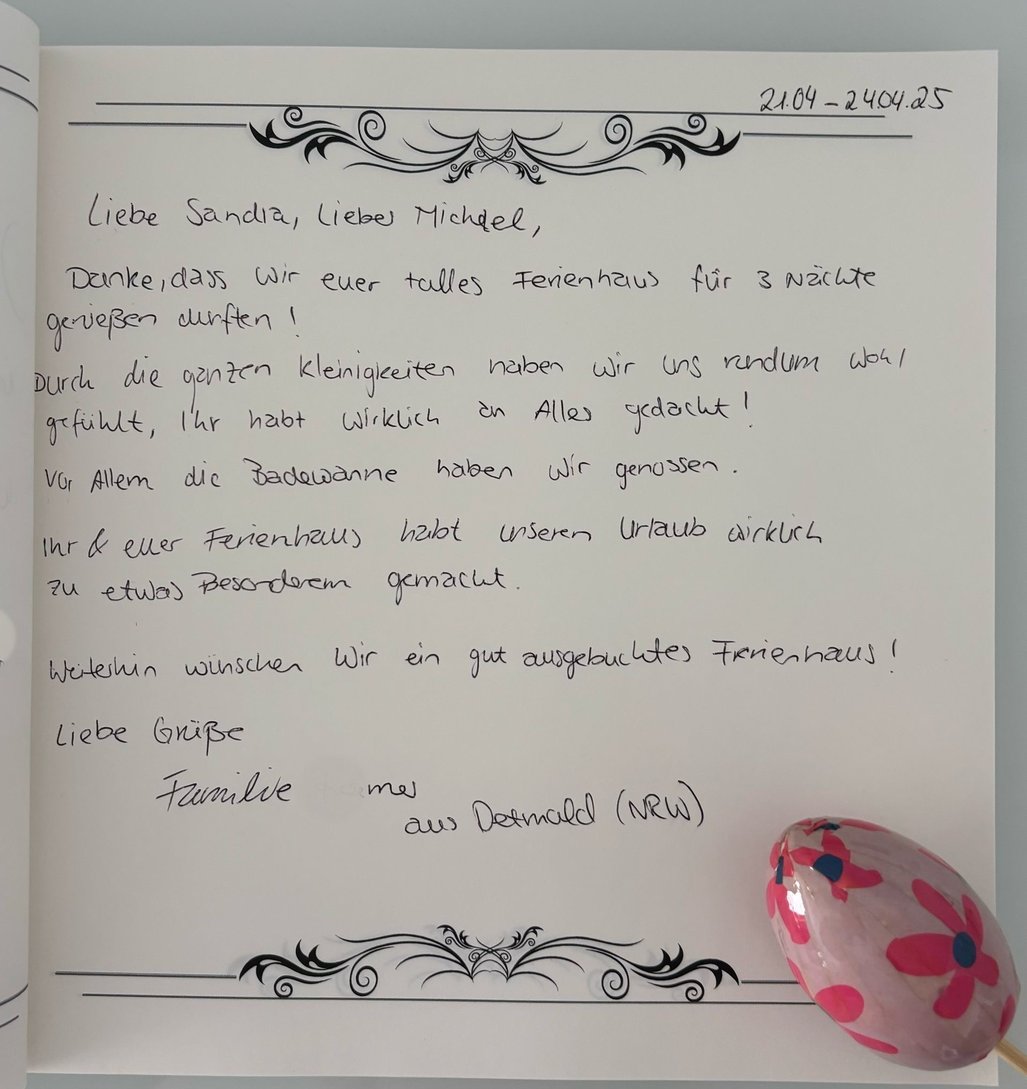 21.04 – 24.04.25
Liebe Sandra, Lieber Michael,
Danke, dass wir euer tolles Ferienhaus für 3 Nächte
genießen durften!
Durch die ganzen Kleinigkeiten haben wir uns rundum wohl
gefühlt, Ihr habt wirklich an Alles gedacht!
Vor Allem die Badewanne haben wir genossen.
Ihr & euer Ferienhaus habt unseren Urlaub wirklich
zu etwas Besonderem gemacht.
Weiterhin wünschen wir ein gut ausgebuchtes Ferienhaus!
Liebe Grüße
Familie
aus Detmold (NRW)